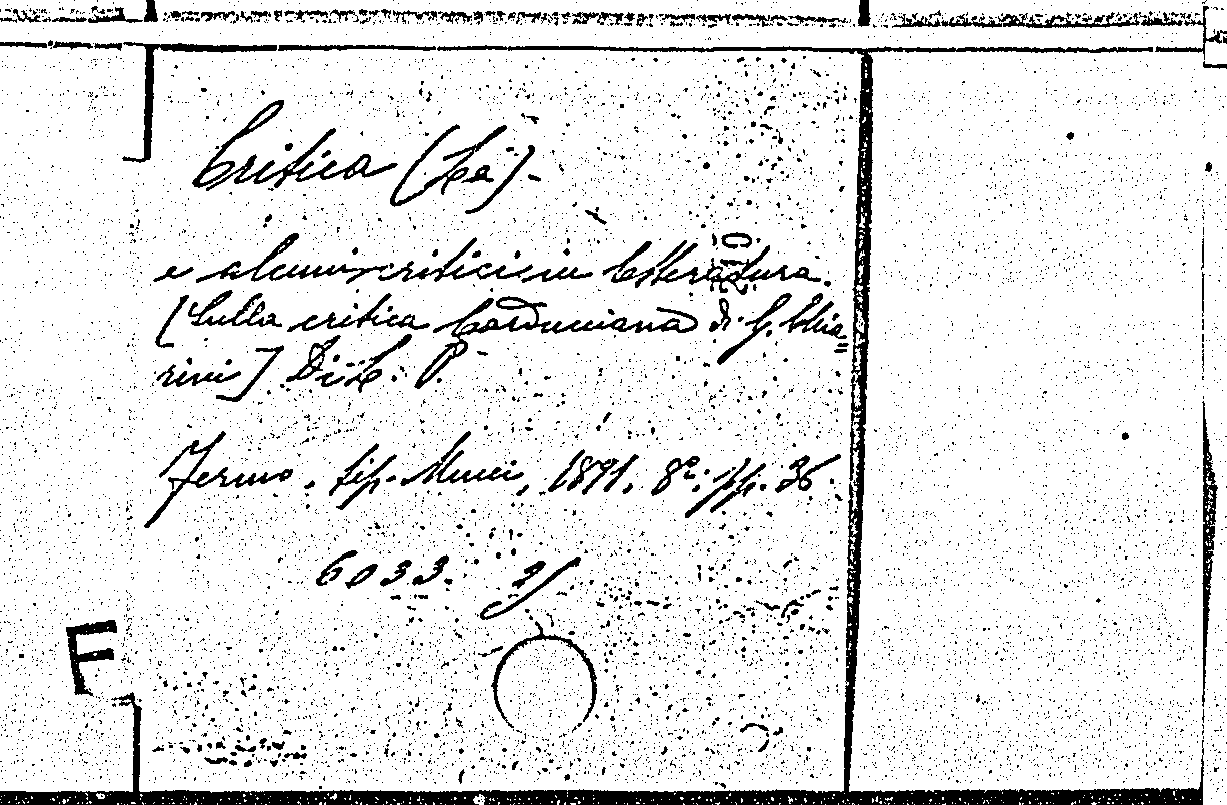 Critica (La).-
e alcuni critici in letteratura.
[Sulla critica Carducciana di G. Chia=
rini] Di L. P.
Fermo, tip. Mucci, 1891. 8º. pp. 36.
6033.
F